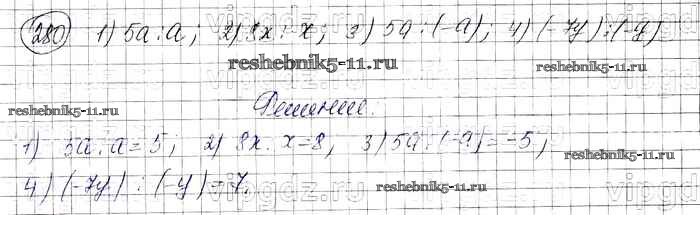 280 1) 5a : a; 2) 8x : x; 3) 5a : (-a); 4) (-7y) : (-y)
reshebnik5-11.ru reshebnik5-11.ru
vipgdz.ru
reshebnik5-11.ru Решение.
1) 5a : a = 5; 2) 8x : x = 8, 3) 5a : (-a) = -5;
reshebnik5-11.ru
4) (-7y) : (-y) = 7.
reshebnik5-11.ru
vipgdz.ru